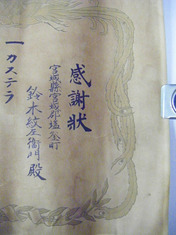 感謝狀
宮城縣宮城郡塩釜町
鈴木紋左衞門殿
一カステラ